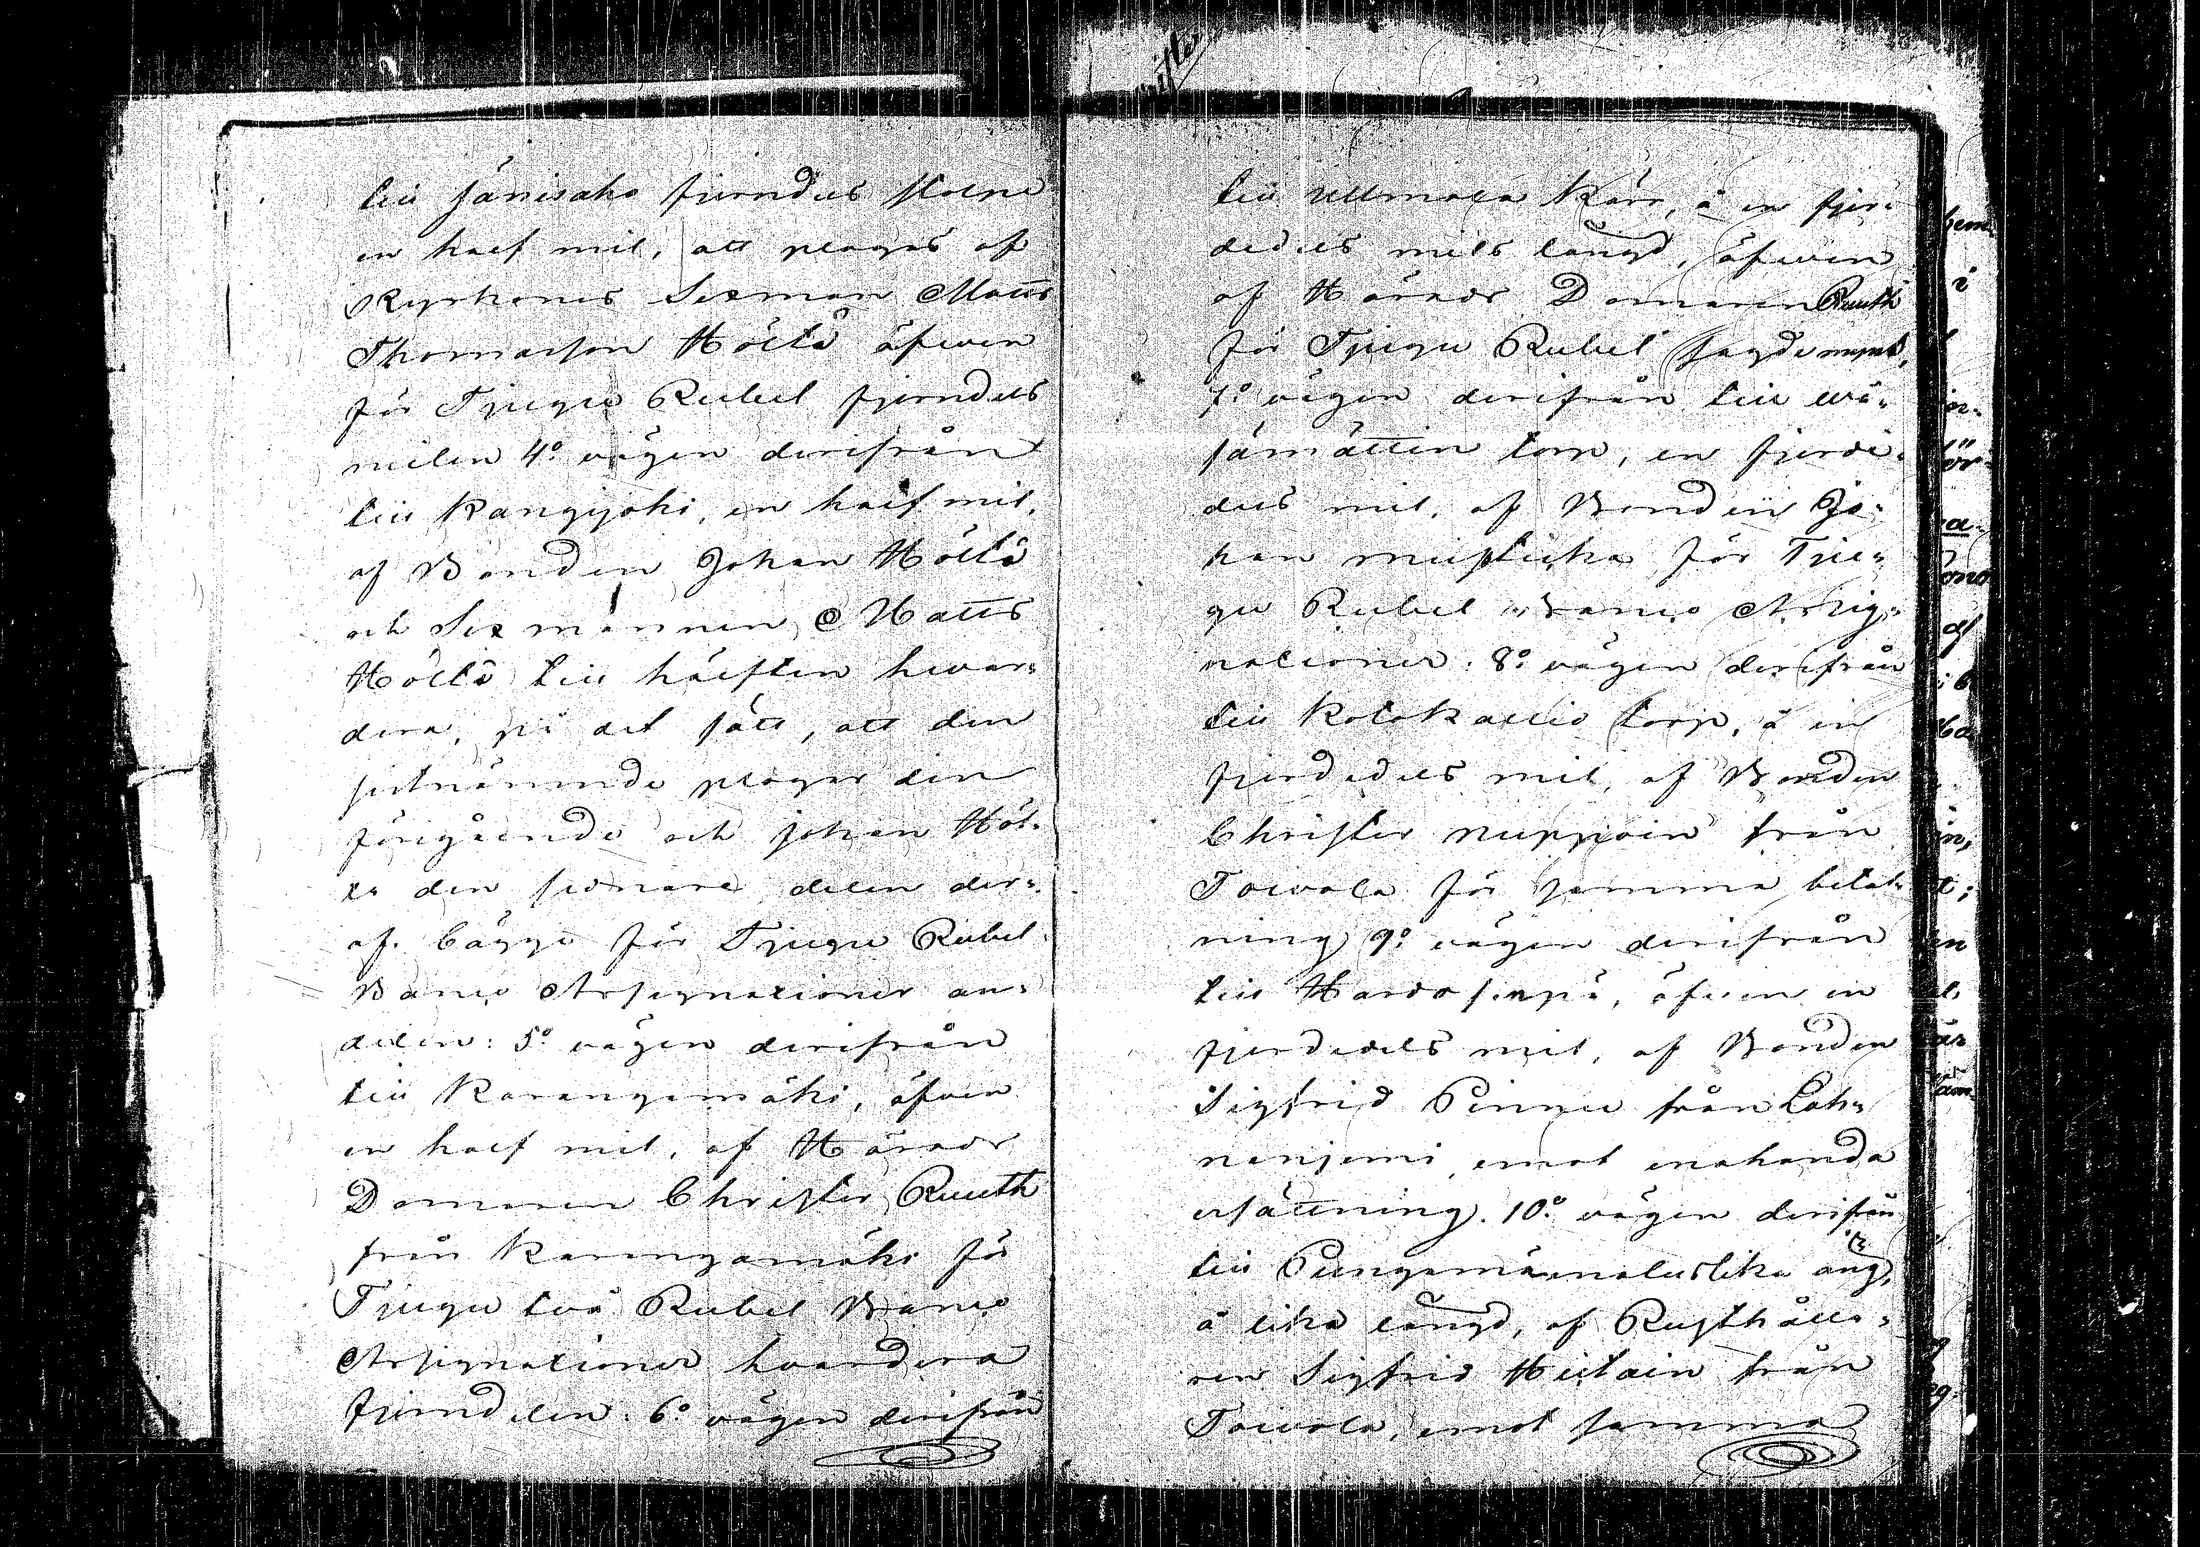 till Jänisaho fjerndels stolpe
en half mil, att plogas af
Kyrkones Sexman Matts
Thomasson Höltä äfwen
för Tjugu Rubel fjerndels
milen 4:o vägen derifrån
till Kangijoki, en half mil,
af Bonden Johan Höltä
och Sexmannen Matts
Höltä till hälften hwar-
dera, på det sätt, att den
sistnämnde plogar den
föregående och Johan Höl-
tä den sednare delen der-
af. bägge för Tjugu Rubel
Banco Assignationer an-
delen: 5:o vägen derifrån
till Karangamäki, äfven
en half mil, af Härads
Domaren Christer Ruuth
från Karangamäki för
Tjugu två Rubel Banco
Assignationer hvardera
fjerndelen: 6:o vägen derifrån
till Ullmala Kärr, à en fjer-
dedels mils längd, äfwen
af Härads Domaren Ruuth
för Tjugu Rubel sagde mynt,
7:o vägen derifrån till
torp, en fjerde-
dels mil, af Bonden Jo-
han för Tju-
gu Rubel Banco Assig-
nationer: 8:o vägen derifrån
till Kolokallio torp, à en
fjerdedels mil, af Bonden
Christer Nuppoin från
Toivola för samma betal-
ning 9:o vägen derifrån
till äfven en
fjerdedels mil, af Bonden
Sigfrid från Lah-
nanjemi emot enahanda
ersättning. 10:o vägen derifrån
till äng,
à lika längd, af Rusthålla-
ren Sigfrid från
Toivola, emot samma